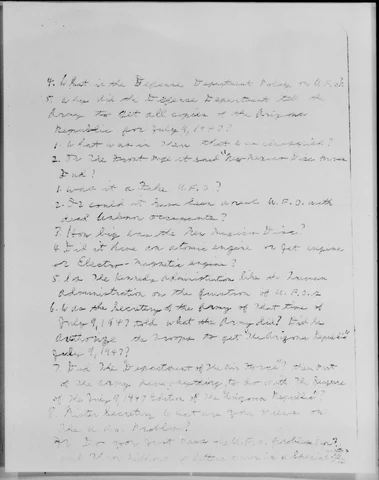 4. What is the Defense Department Policy on U.F.O.s
5. Why did the Defense Department tell the
Army to get all copies of the Arizona
Republic for July 9, 1947?
1. What was in there that was classified?
2. On the Front Page it said "New Mexican Disc
Dud?
1. was it a Fake U.F.O.?
2. If could it have been a real U.F.O. with
dead occupants?
3. How big was the New Mexican Disc?
4. Did it have an atomic engine or Jet engine
or Electro-Magnetic engine?
5. Is the Kennedy Administration like the Truman
Administration on the question of U.F.O.s
6. Was the Secretary of the Army at that time of
July 9, 1947 told what the Army did? Did he
Authorize the troops to get the Arizona Republic
July 9, 1947?
7. Did the Department of the Air Force then part
of the Army have anything to do with the seizure
of the July 9, 1947 Edition of the Arizona Republic?
8. Mister Secretary what are your views on
the U.F.O. Problem?
Do you just have